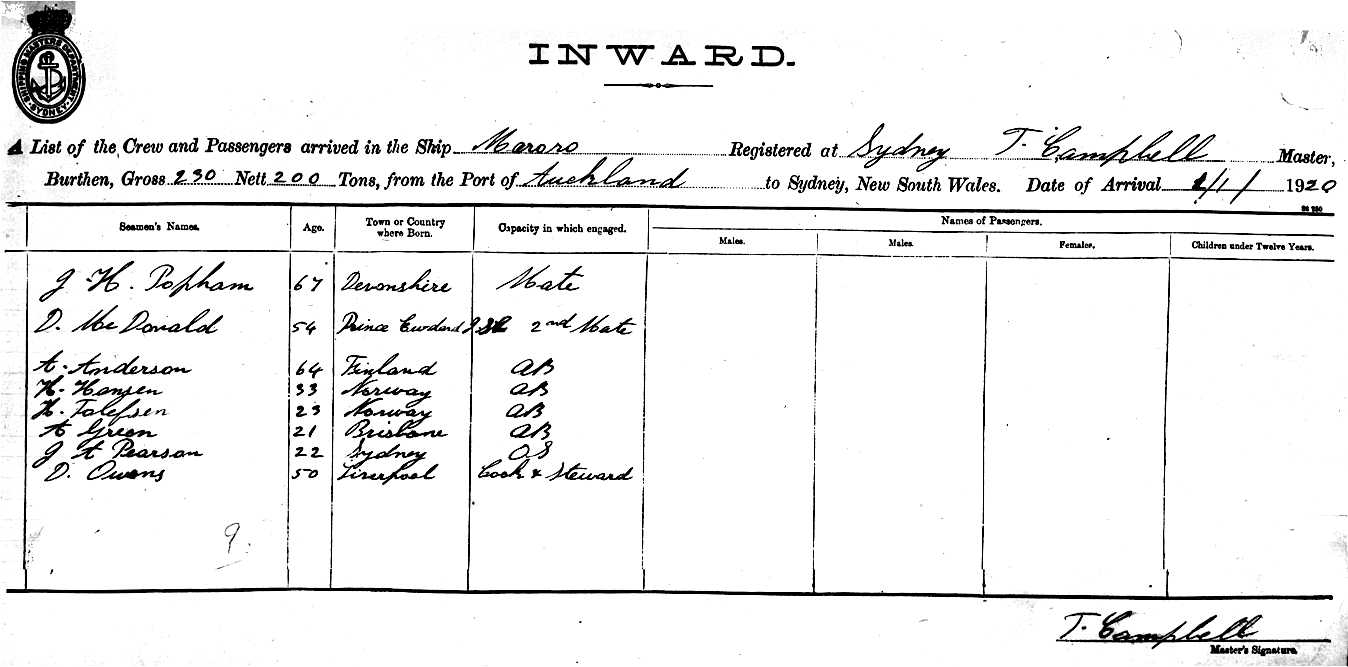 SHIPPING MASTERS DEPARTMENT SYDNEY
INWARD.
A List of the Crew and Passengers arrived in the Ship Mororo Registered at Sydney T. Campbell Master,
Burthen, Gross 230 Nett 200 Tons, from the Port of Auckland to Sydney, New South Wales. Date of Arrival 2/1/ 1920
Names of Passengers.
Seamen's Names. Age. Town or Country where Born. Capacity in which engaged. Males. Males. Females. Children under Twelve Years.
J. H. Popham 67 Devonshire Mate
D. McDonald 54 Prince Ewdard Isl 2nd Mate
A. Anderson 64 Finland AB
H. Hansen 33 Norway AB
H. Tolefsen 23 Norway AB
A Green 21 Brisbane AB
J A Pearson 22 Sydney OS
D. Owens 50 Liverpool Cook & Steward
9.
T. Campbell
Master's Signature.